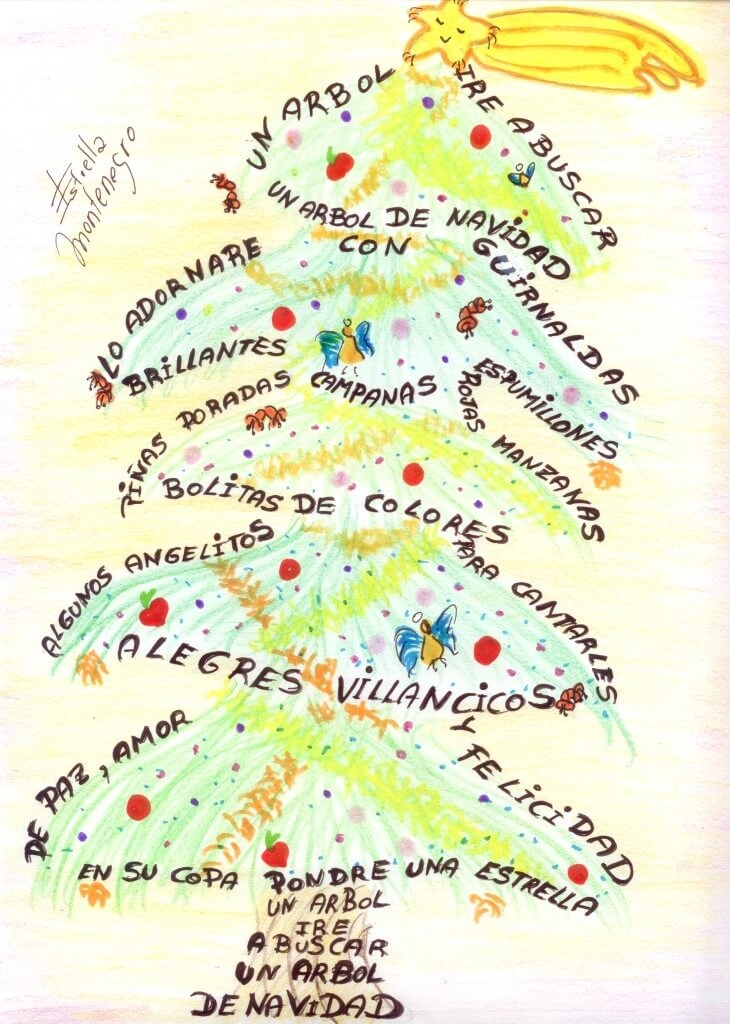 Estrella
Montenegro
UN ARBOL
IRE A BUSCAR
UN ARBOL DE NAVIDAD
LO ADORNARE
CON
GUIRNALDAS
BRILLANTES
ESPUMILLONES
PIÑAS DORADAS
CAMPANAS
ROJAS MANZANAS
BOLITAS DE COLORES
ALGUNOS ANGELITOS
PARA CANTARLES
ALEGRES VILLANCICOS
DE PAZ, AMOR
Y FELICIDAD
EN SU COPA PONDRE UNA ESTRELLA
UN ARBOL
IRE
A BUSCAR
UN ARBOL
DE NAVIDAD